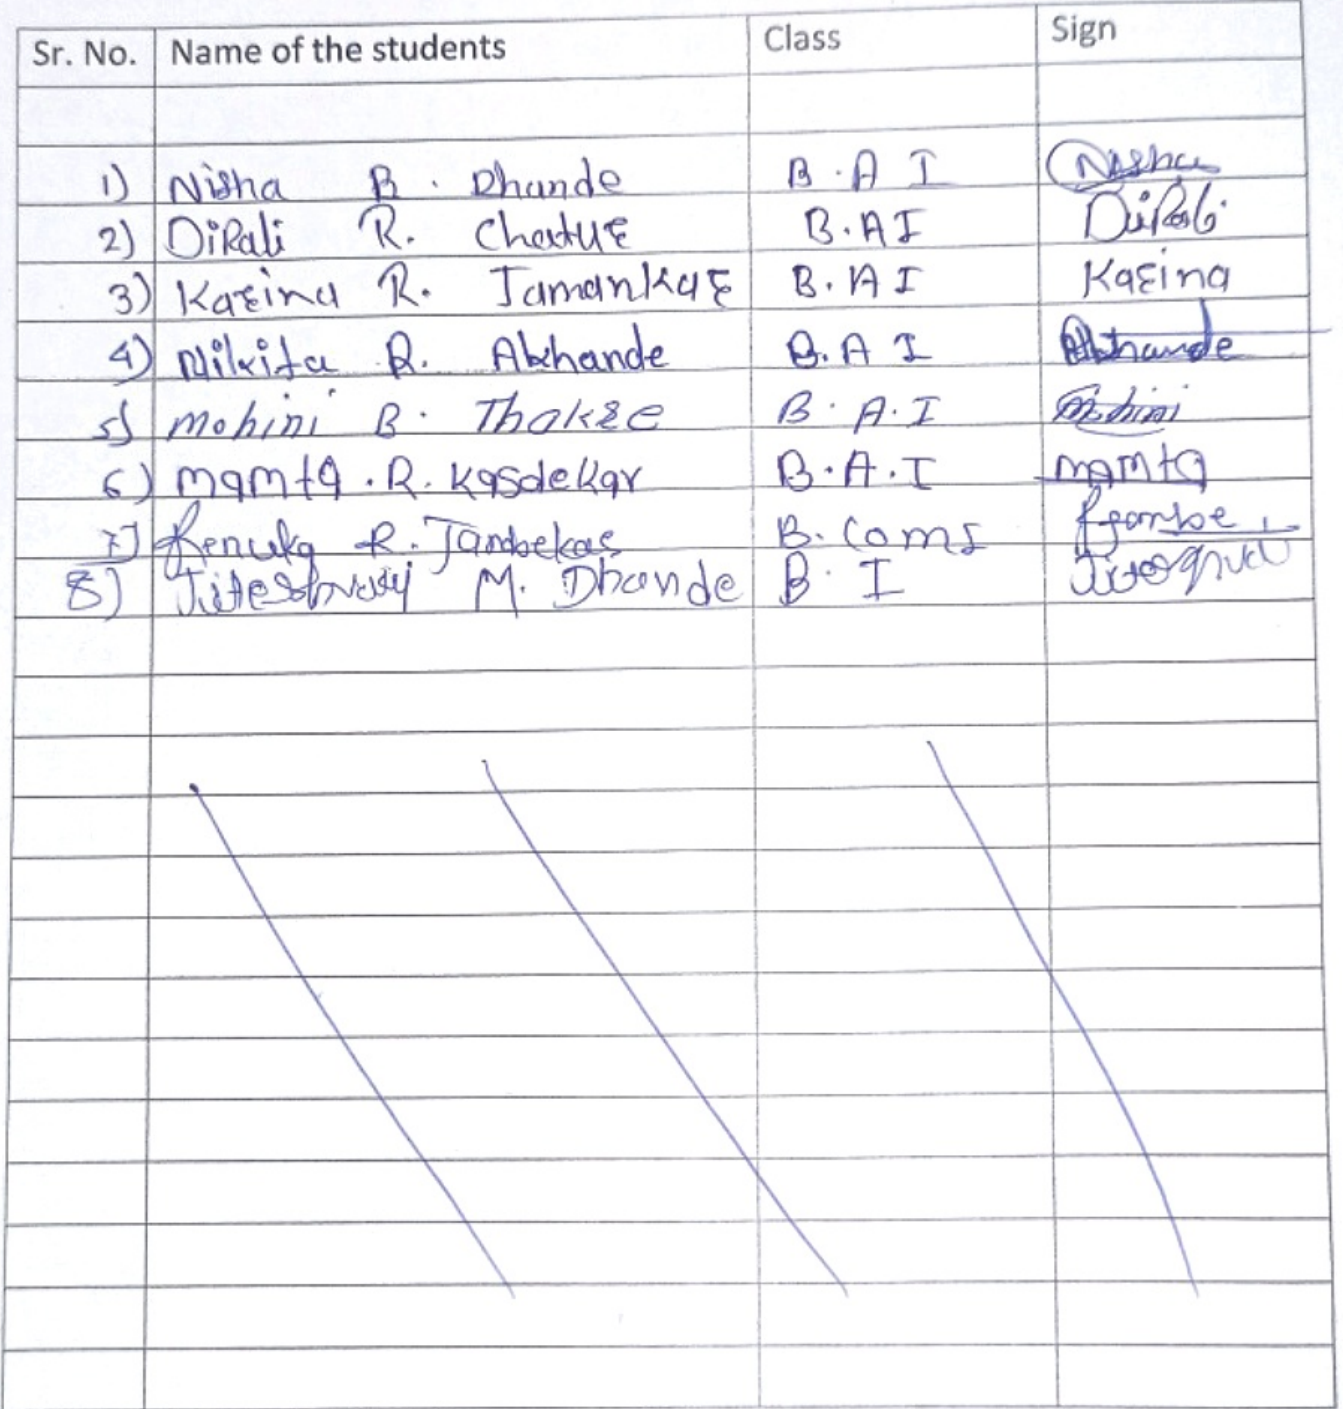 Sr. No. Name of the students Class Sign
1) Nisha B. Dhande B.A I Nisha
2) Dipali R. Chatur B.A I Dipali
3) Karina R. Jamankar B.A I Karina
4) Nikita R. Akhande B.A I Akhande
5) Mohini B. Thakre B.A.I Mohini
6) Mamta.R. Kasdekar B.A.I Mamta
7) Renuka R. Jambekar B. Com I
8) M. Dhande B. I